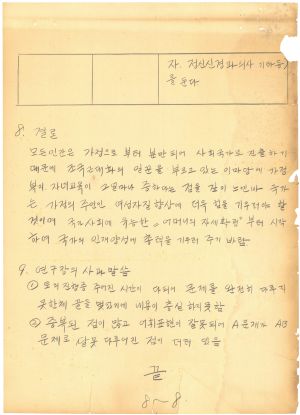 자. 정신신경과 의사 기타 등
을 둔다
8. 결론
모든 인간은 가정으로 부터 분만되어 사회국가로 진출하기
때문에 조국근대화의 연륜을 부르고 있는 이마당에 가정
부의 자녀교육이 그 얼마나 중하다는 점을 깊이 느낀바 국가
는 가정의 주인인 여성자질향상에 더욱 힘을 기우려야 할
것이며 국가사회에 유능한 "어머니의 자세확립" 부터 시작
하여 국가의 인재양성에 총력을 기우려 주기 바람
9. 연구관의 사과말씀
① 토의진행중 주어진 시간이 아쉬워 문제를 완전히 다루지
못한채 끝을 맺었기에 내용이 충실하지 못함
② 중복된 점이 많고 어휘표현이 잘못되어 A문제가 AB
문제로 잘못 다루어진 점이 더러 있음
끝
8~8.